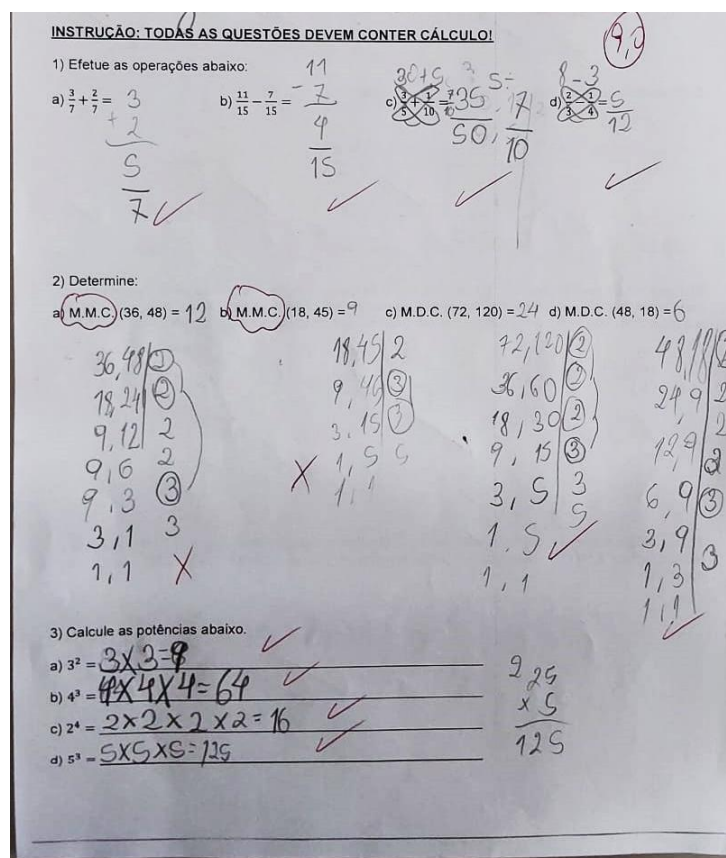 INSTRUÇÃO: TODAS AS QUESTÕES DEVEM CONTER CÁLCULO!
9,0
1) Efetue as operações abaixo:
a) 3/7 + 2/7 = 3
+ 2
5
7
b) 11/15 - 7/15 = 11
- 7
4
15
c) 3/5 + 1/10 = 30+5
35
50
5÷
7
10
d) 2/3 - 1/4 = 8-3
5
12
2) Determine:
a) M.M.C. (36, 48) = 12 b) M.M.C. (18, 45) = 9 c) M.D.C. (72, 120) = 24 d) M.D.C. (48, 18) = 6
36,48 2
18,24 2
9,12 2
9,6 2
9,3 3
3,1 3
1,1
18,45 2
9,45 3
3,15 3
1,5 5
1,1
72,120 2
36,60 2
18,30 2
9,15 3
3,5 3
1,5 5
1,1
48,18 2
24,9 2
12,9 2
6,9 3
3,9 3
1,3
1,1
3) Calcule as potências abaixo.
a) 3² = 3x3=9
b) 4³ = 4x4x4=64
c) 2⁴ = 2x2x2x2=16
d) 5³ = 5x5x5=125
2 25
x 5
125